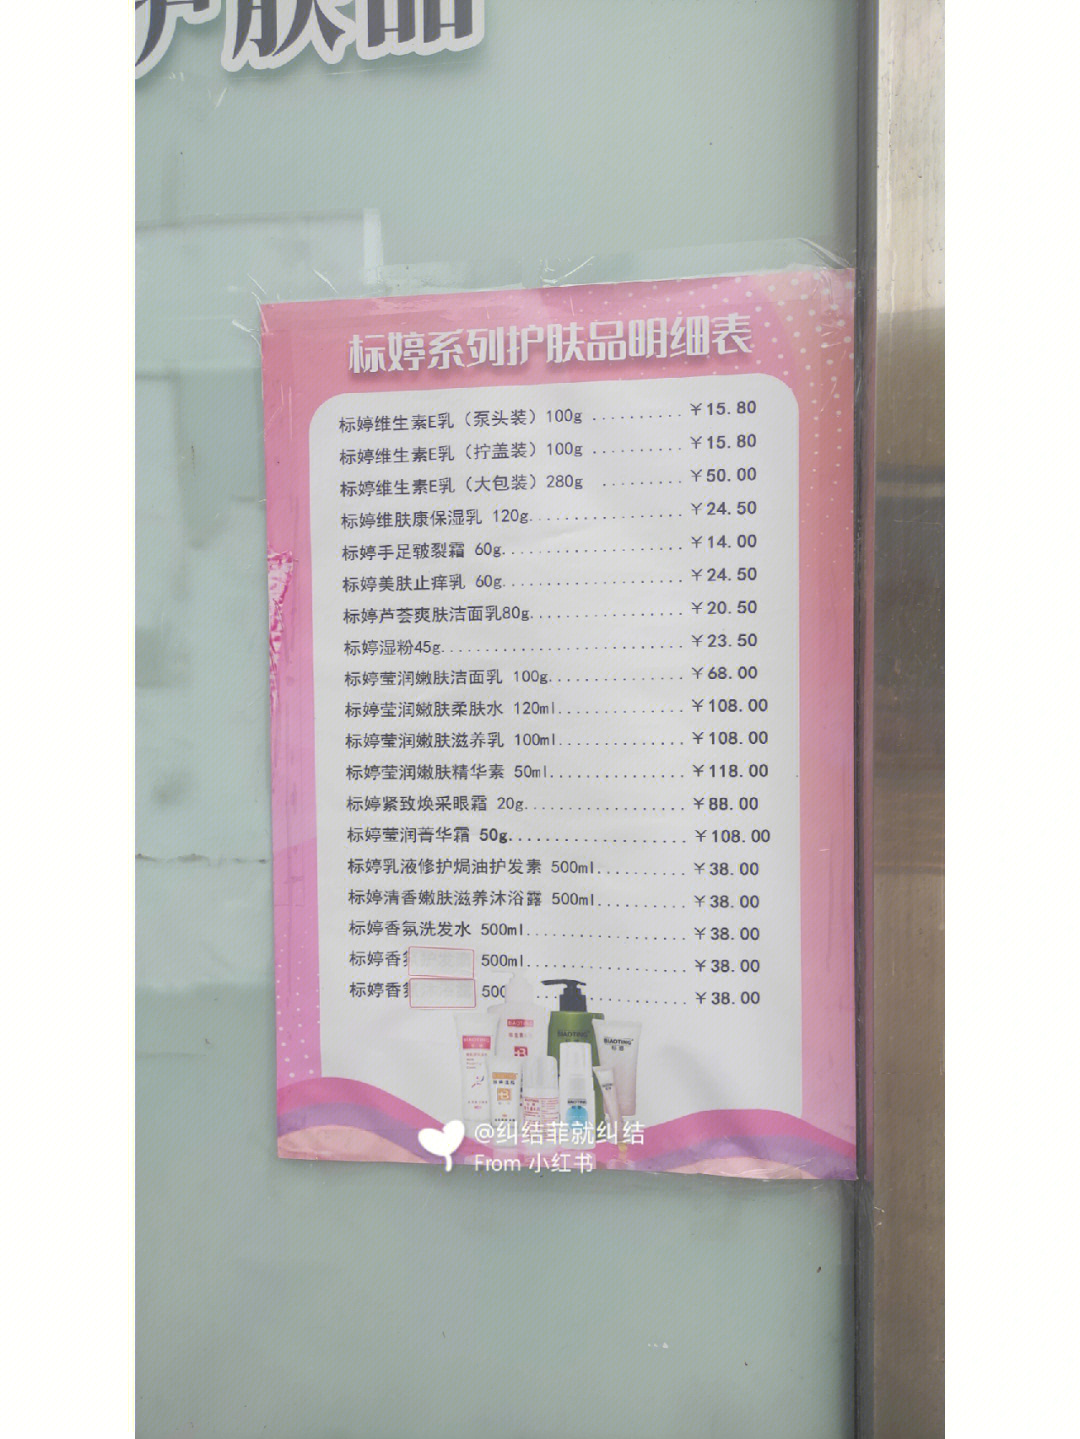 护肤品
标婷系列护肤品明细表
标婷维生素E乳（泵头装）100g ..........￥15.80
标婷维生素E乳（拧盖装）100g ..........￥15.80
标婷维生素E乳（大包装）280g .........￥50.00
标婷维肤康保湿乳 120g.................￥24.50
标婷手足皲裂霜 60g....................￥14.00
标婷美肤止痒乳 60g....................￥24.50
标婷芦荟爽肤洁面乳80g.................￥20.50
标婷湿粉45g...........................￥23.50
标婷莹润嫩肤洁面乳 100g...............￥68.00
标婷莹润嫩肤柔肤水 120ml..............￥108.00
标婷莹润嫩肤滋养乳 100ml..............￥108.00
标婷莹润嫩肤精华素 50ml...............￥118.00
标婷紧致焕采眼霜 20g..................￥88.00
标婷莹润菁华霜 50g....................￥108.00
标婷乳液修护焗油护发素 500ml..........￥38.00
标婷清香嫩肤滋养沐浴露 500ml..........￥38.00
标婷香氛洗发水 500ml..................￥38.00
标婷香 500ml..................￥38.00
标婷香 500 ................￥38.00
BIAOTING
BIAOTING
标婷
@纠结菲就纠结
From 小红书